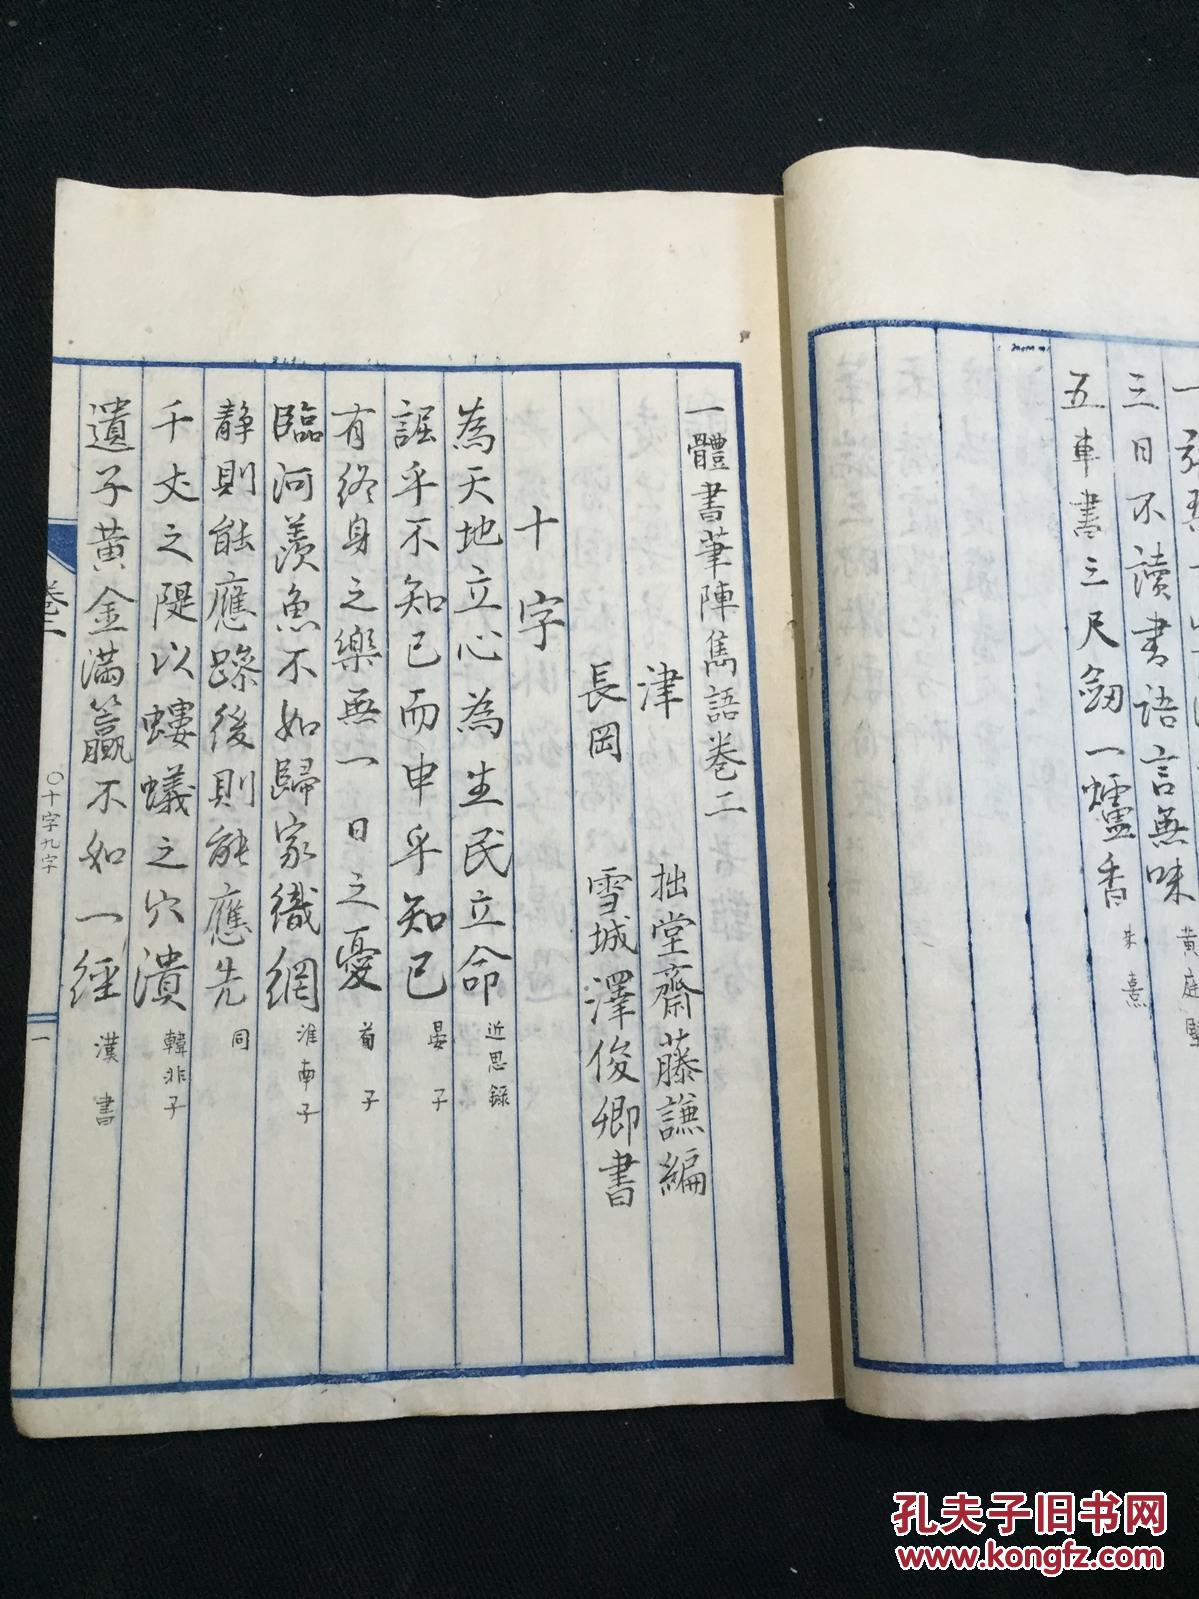 三日不讀書語言無味 黄庭堅
五車書三尺劒一爐香 朱熹
一體書筆陣雋語巻二
津 拙堂齋藤謙編
長岡 雪城澤俊卿書
十字
為天地立心為生民立命 近思録
詘乎不知己而申乎知己 晏子
有終身之樂無一日之憂 荀子
臨河羨魚不如歸家織網 淮南子
静則能應躁後則能應先 同
千丈之隄以螻蟻之穴潰 韓非子
遺子黄金滿籯不如一經 漢書
巻二
〇十字九字
一
孔夫子旧书网
www.kongfz.com